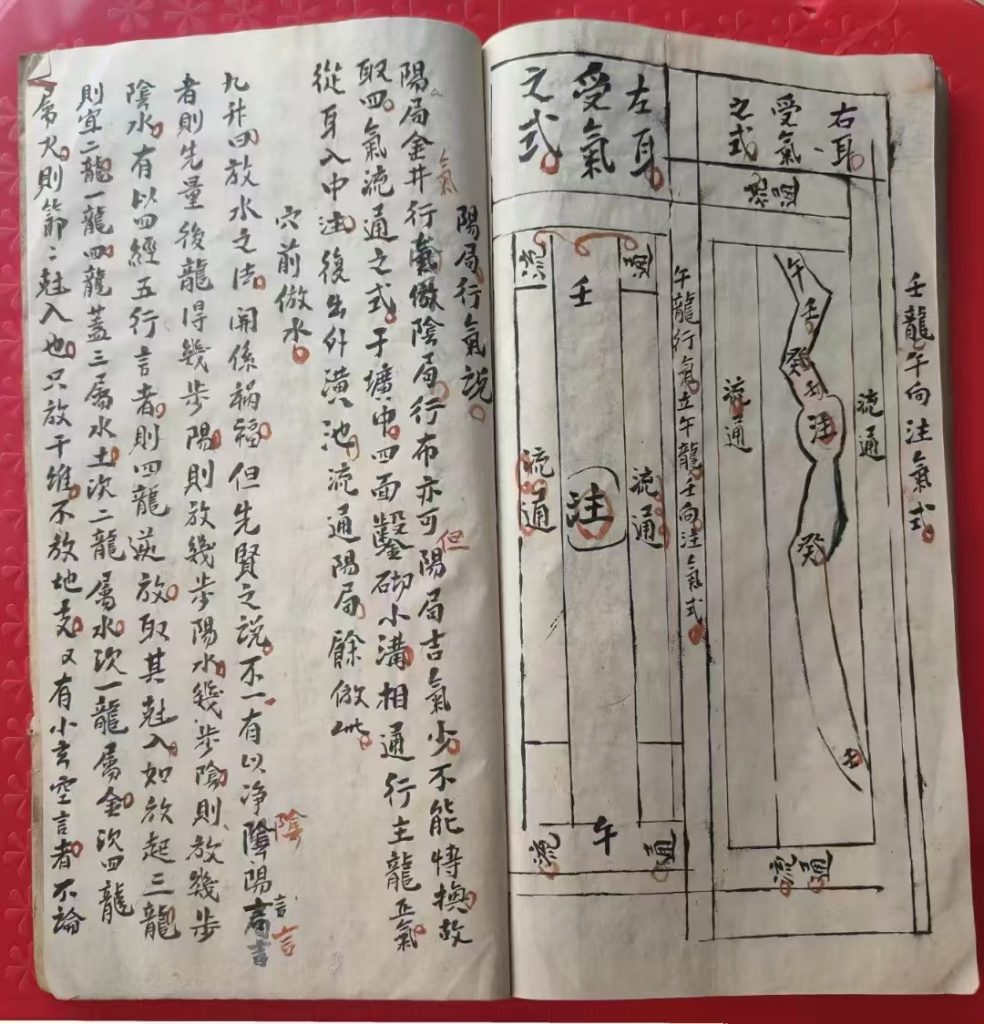 壬龍午向注氣式
右耳
受氣
之式
流通
流通
流通
午
壬
癸
注
癸
壬
流通
午龍行氣立午龍壬向注氣式
左耳
受氣
之式
流
通
壬
流通
注
流通
午
流
通
陽局行氣說
氣
陽局金井行氣倣陰局行布亦可陽局吉氣少不能轉換故
但
取四氣流通之式于壙中四面鑿砌小溝相通行主龍正氣
從耳入中注後出外潢池流通陽局餘倣此
穴前倣水
九升四放水之法開係禍福但先賢之說不一有以净陰陽言
陰
言
者則先量後龍得幾步陽則放幾步陽水幾步陰則放幾步
陰水有以四經五行言者則四龍逆放取其尅入如放起三龍
則宜二龍一龍四龍蓋三屬水土次二龍屬水次一龍屬金次四龍
屬火則節二尅入也只放干維不放地支又有小玄空言者不論